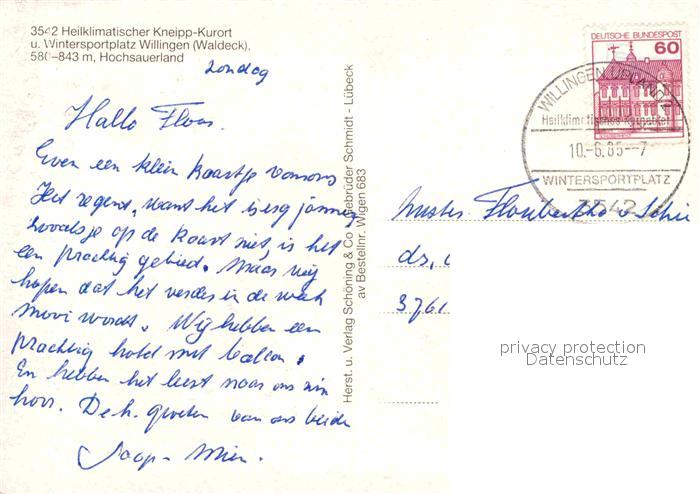 3542 Heilklimatischer Kneipp-Kurort
u. Wintersportplatz Willingen (Waldeck),
580–843 m, Hochsauerland
Zondag
Hallo Floor.
Even een klein kaartje van ons
Het regent, want het is erg jammer
zoals je op de kaart ziet, is het
een prachtig gebied. Maar wij
hopen dat het verder in de week
mooi wordt. Wij hebben een
prachtig hotel met balkon.
En hebben het best naar ons zin
hoor. De h. groeten van ons beide
Jaap - Mien.
Herst. u. Verlag Schöning & Co + Gebrüder Schmidt - Lübeck
av Bestellnr. Wligen 683
DEUTSCHE BUNDESPOST
60
WILLINGEN, UPLAND
Heilklimatisches Kneippheilbad
10.-6.85--7
WINTERSPORTPLATZ
3542
v Schie
ds.
3761
privacy protection
Datenschutz